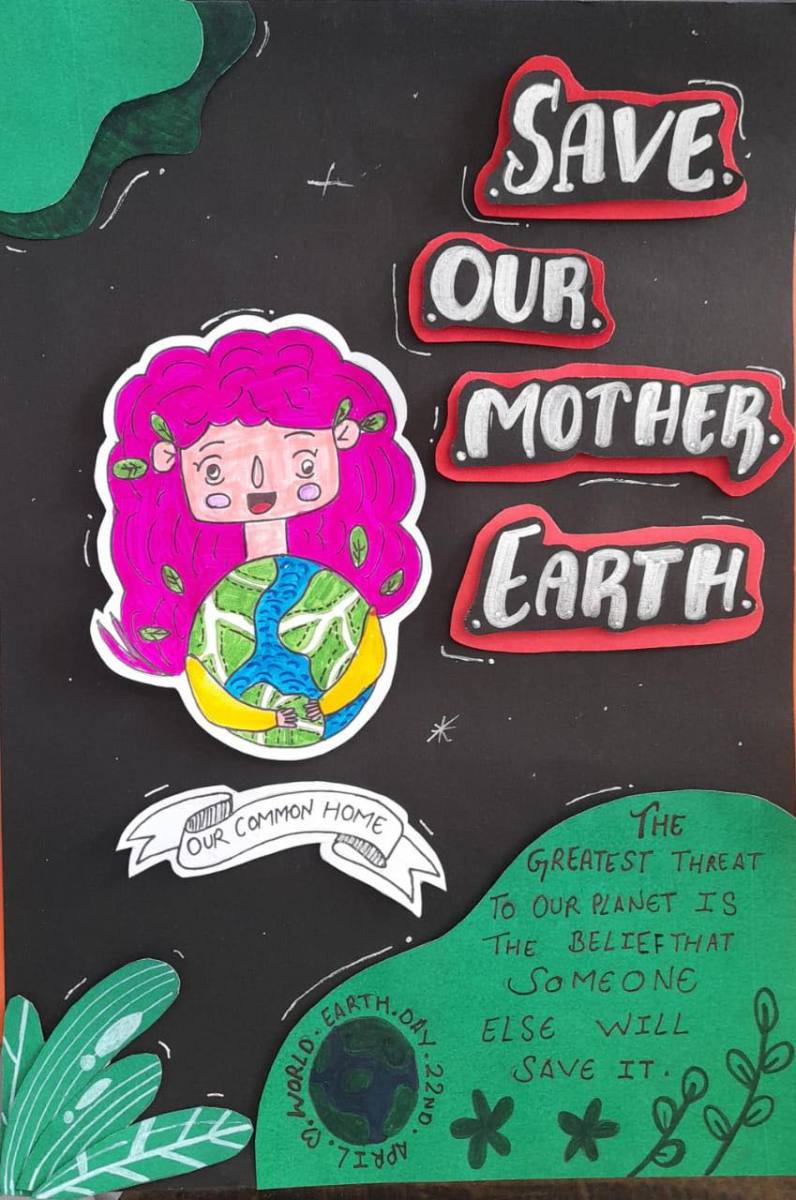 SAVE.
OUR.
MOTHER.
EARTH.
OUR COMMON HOME
THE
GREATEST THREAT
TO OUR PLANET IS
THE BELIEF THAT
SOMEONE
ELSE WILL
SAVE IT.
WORLD. EARTH. DAY. 22ND. APRIL